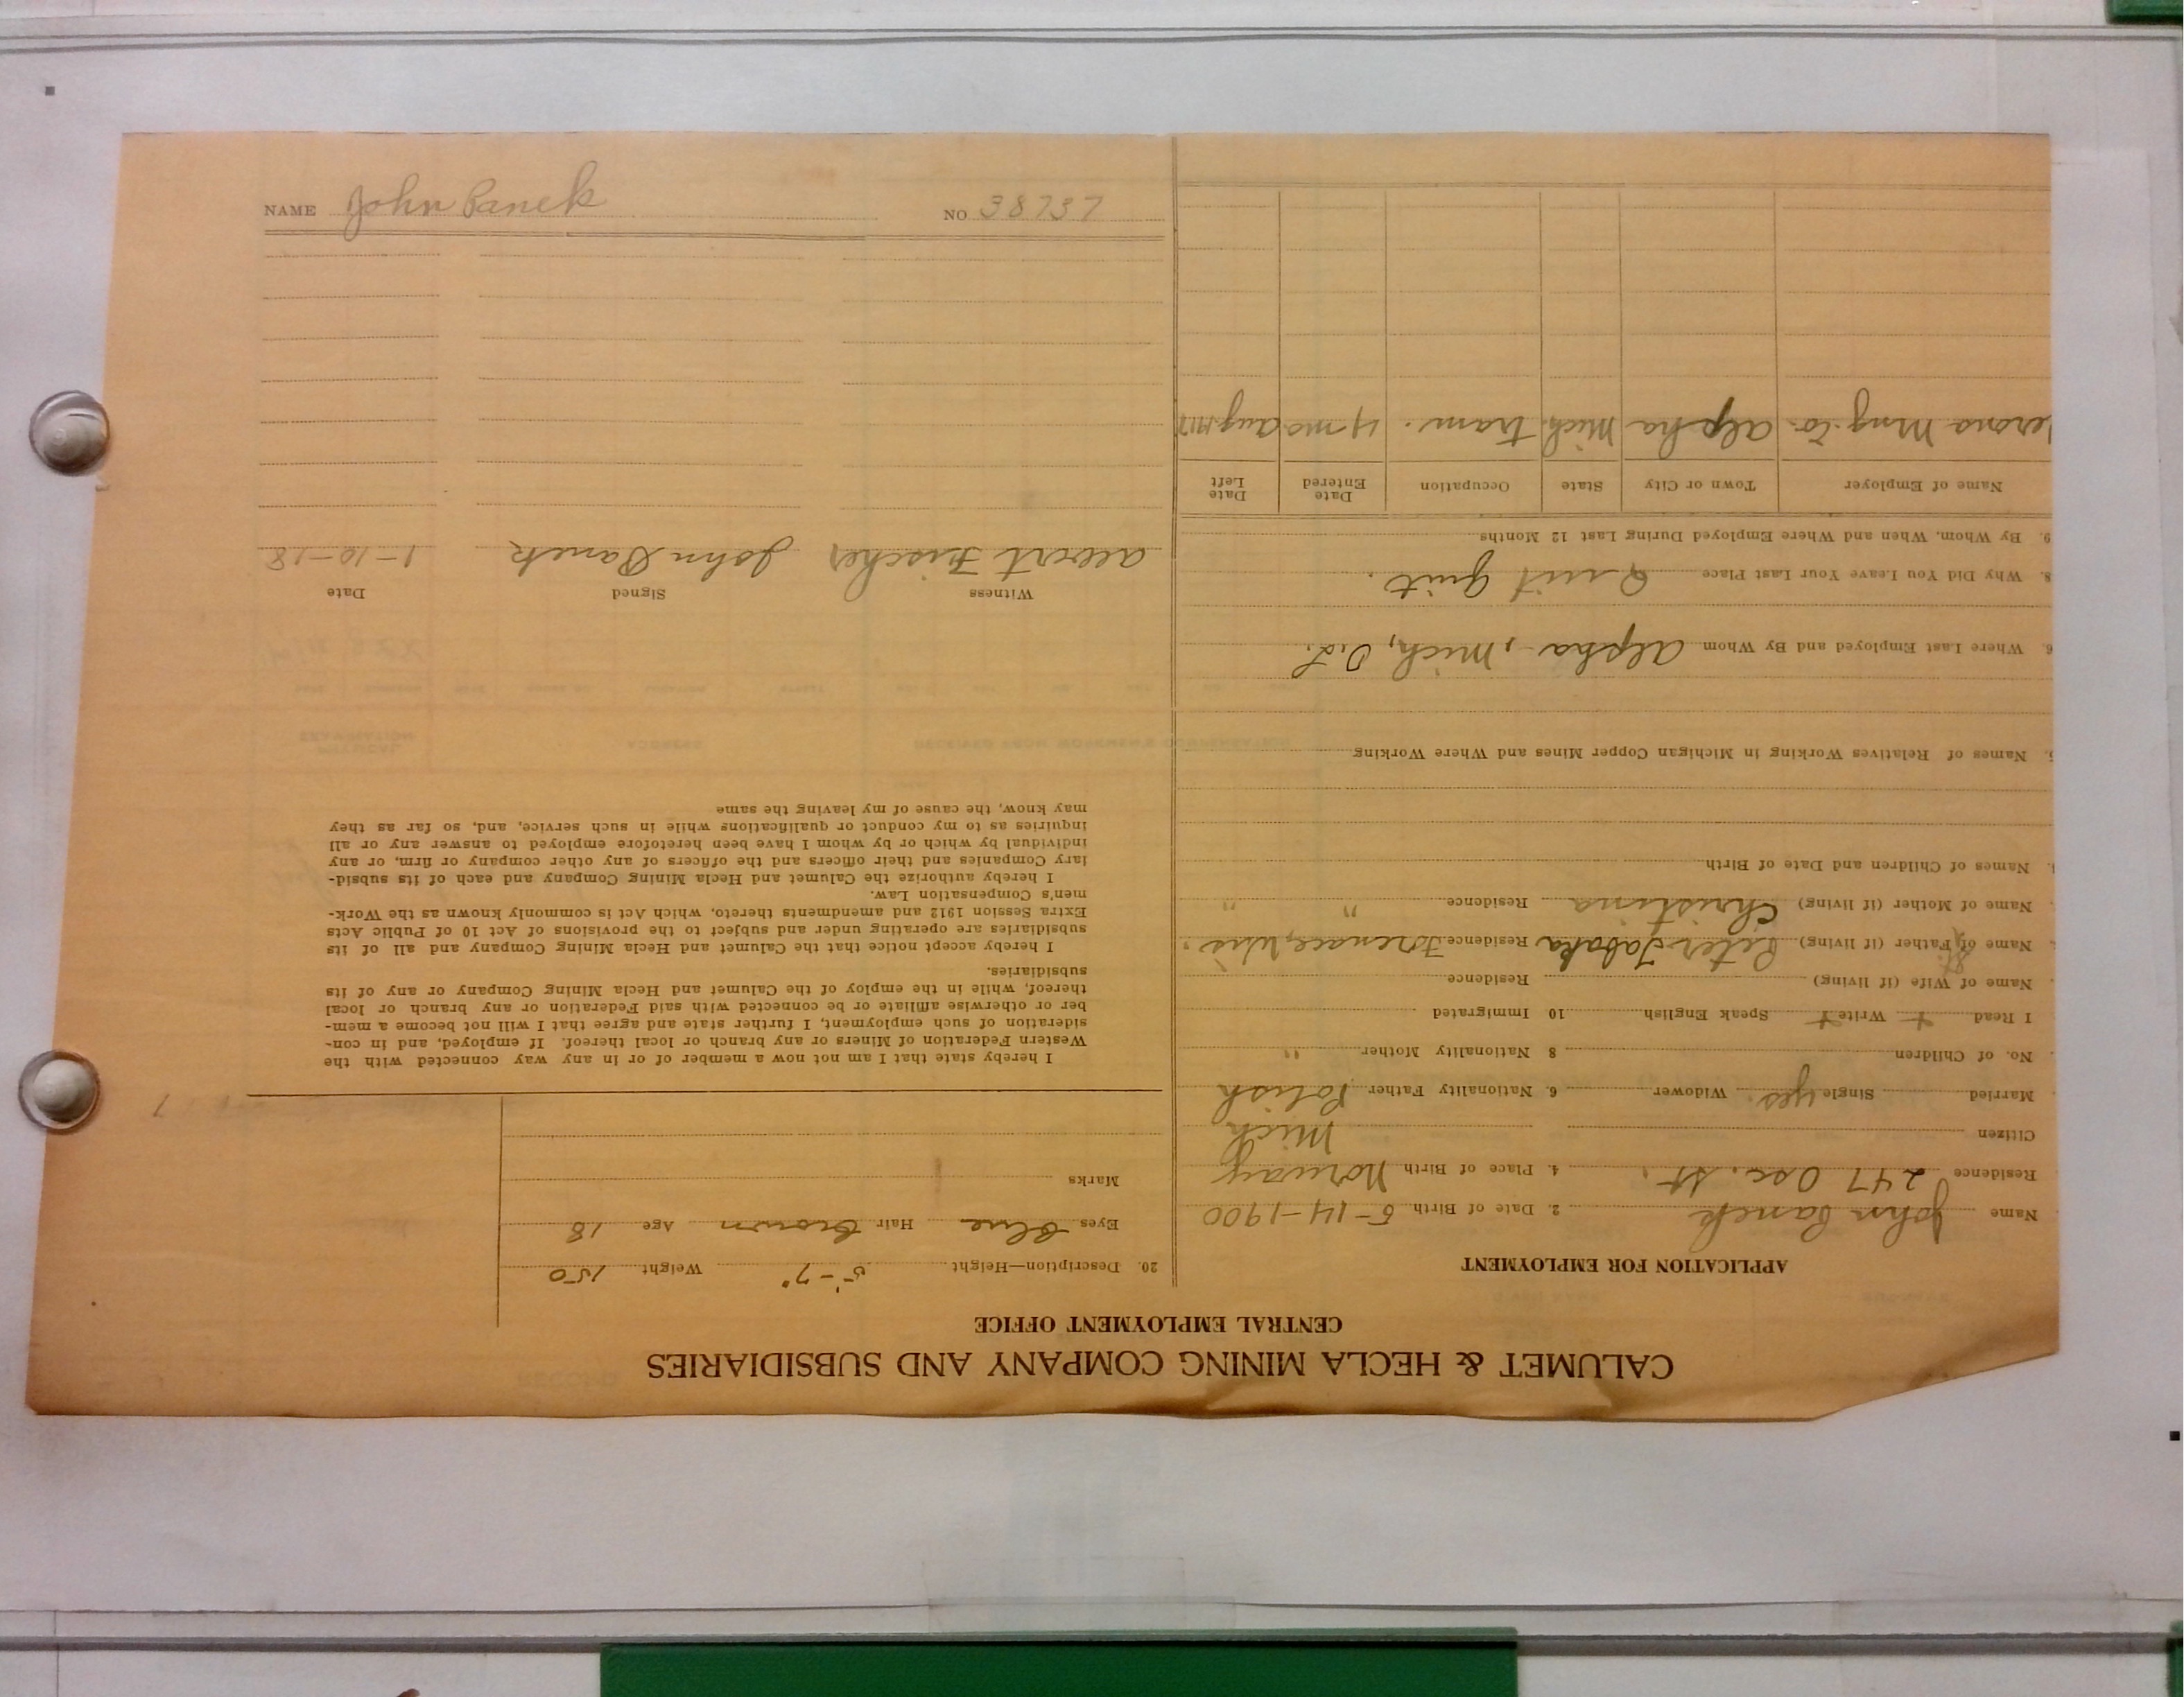 CALUMET & HECLA MINING COMPANY AND SUBSIDIARIES
CENTRAL EMPLOYMENT OFFICE
APPLICATION FOR EMPLOYMENT
Name John Panek 2. Date of Birth 5-14-1900
Residence 247 Osc. St. 4. Place of Birth Norway
Citizen Mich
Married Single yes. Widower 6. Nationality Father Polish
No. of Children 8 Nationality Mother "
I Read + Write + Speak English 10 Immigrated
Name of Wife (if living) Residence
Name of St. Father (if living) Peter Tabaka Residence Florence, Wis.
Name of Mother (if living) Christina Residence " "
Names of Children and Date of Birth
Names of Relatives Working in Michigan Copper Mines and Where Working
6. Where Last Employed and By Whom Alpha, Mich,
8. Why Did You Leave Your Last Place Quit
9. By Whom, When and Where Employed During Last 12 Months
Name of Employer Town or City State Occupation Date Entered Date Left
erona Mng. Co. Alpha Mich. tram. 4 mo Aug. 1917
20. Description—Height 5'-7" Weight 150
Eyes Blue Hair Brown Age 18
Marks
I hereby state that I am not now a member of or in any way connected with the
Western Federation of Miners or any branch or local thereof. If employed, and in con-
sideration of such employment, I further state and agree that I will not become a mem-
ber or otherwise affiliate or be connected with said Federation or any branch or local
thereof, while in the employ of the Calumet and Hecla Mining Company or any of its
subsidiaries.
I hereby accept notice that the Calumet and Hecla Mining Company and all of its
subsidiaries are operating under and subject to the provisions of Act 10 of Public Acts
Extra Session 1912 and amendments thereto, which Act is commonly known as the Work-
men's Compensation Law.
I hereby authorize the Calumet and Hecla Mining Company and each of its subsid-
iary Companies and their officers and the officers of any other company or firm, or any
individual by which or by whom I have been heretofore employed to answer any or all
inquiries as to my conduct or qualifications while in such service, and, so far as they
may know, the cause of my leaving the same
Witness Signed Date
Albert Fischer John Panek 1-10-18
NAME John Panek NO 38737